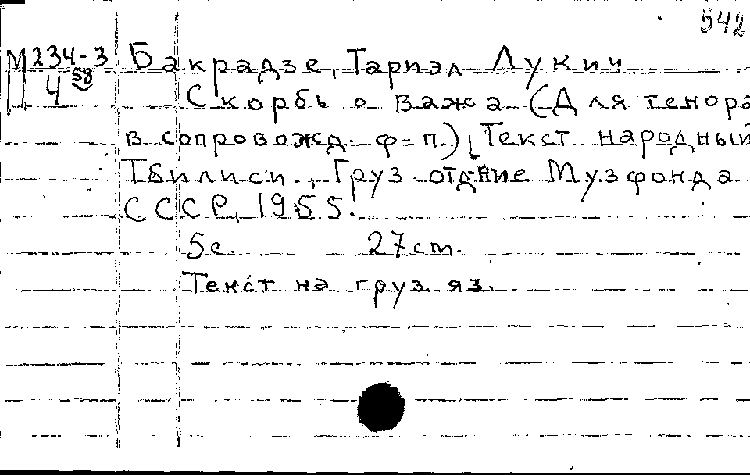 542
М 234-3 Бакрадзе, Тариэл Лукич
4 58
Скорбь о Важа (Для тенора
в сопровожд. ф-п.) Текст народный
Тбилиси., Груз. отд-ние Музфонда
СССР, 1955.
5с. 27см.
Текст на груз. яз.